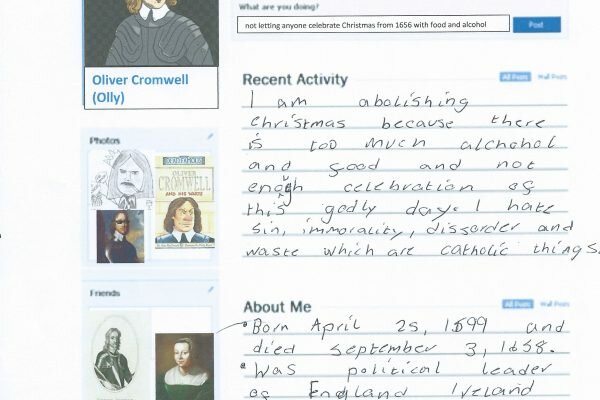 What are you doing?
not letting anyone celebrate Christmas from 1656 with food and alcohol
Post
Oliver Cromwell
(Olly)
Recent Activity
All Posts
Wall Posts
I am abolishing
christmas because there
is too much alchohol
and food and not
enogh celebration of
this godly day. I hate
sin, immorality, dissorder and
waste which are catholic things.
Photos
DEAD FAMOUS
OLIVER
CROMWELL
AND HIS WARTS
Friends
About Me
All Posts
Wall Posts
• Born April 25, 1599 and
died September 3, 1658.
• Was political leader
of England Ireland